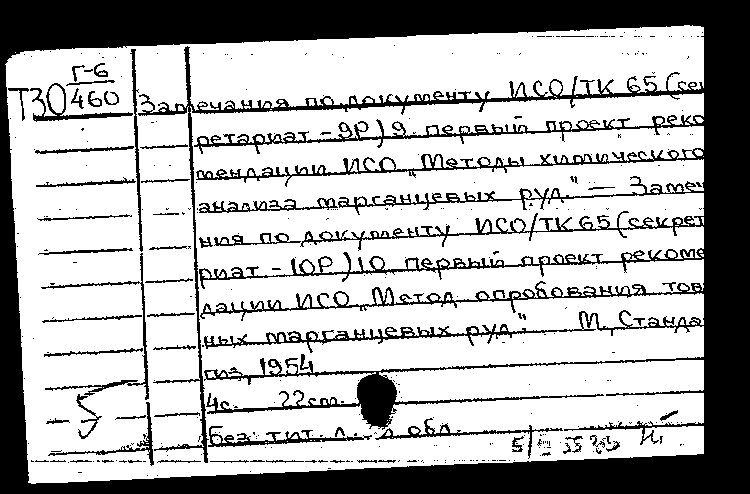 Г-6
Т30 460 Замечания по документу ИСО/ТК 65 (сек
ретариат - 9Р) 9 первый проект реко
мендации ИСО „Методы химического
анализа марганцевых руд." — Замеч
ния по документу ИСО/ТК 65 (секрет
риат - 10Р) 10 первый проект рекоме
дации ИСО „Метод опробования тов
ных марганцевых руд". М., Станда
гиз, 1954
4с. 22 cm.
Без тит. л. обл.
5